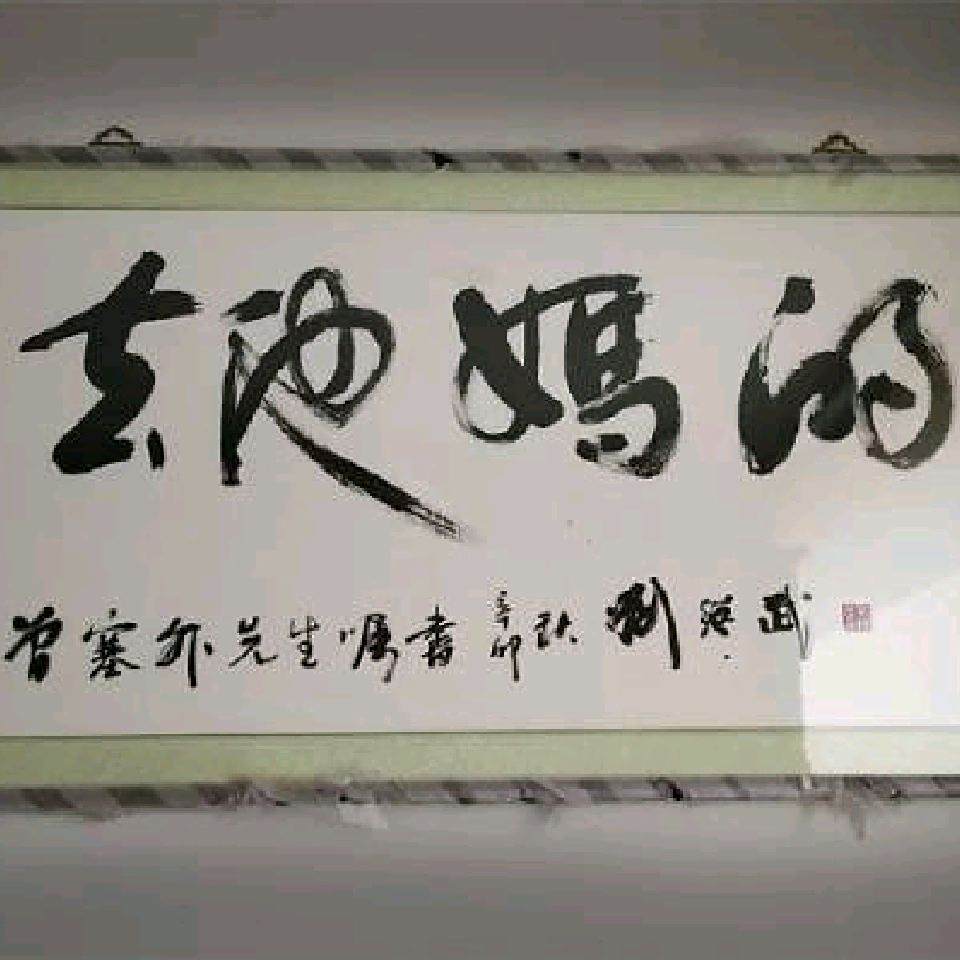 去他媽的
曾塞外先生嘱書 辛卯秋 劉洪武